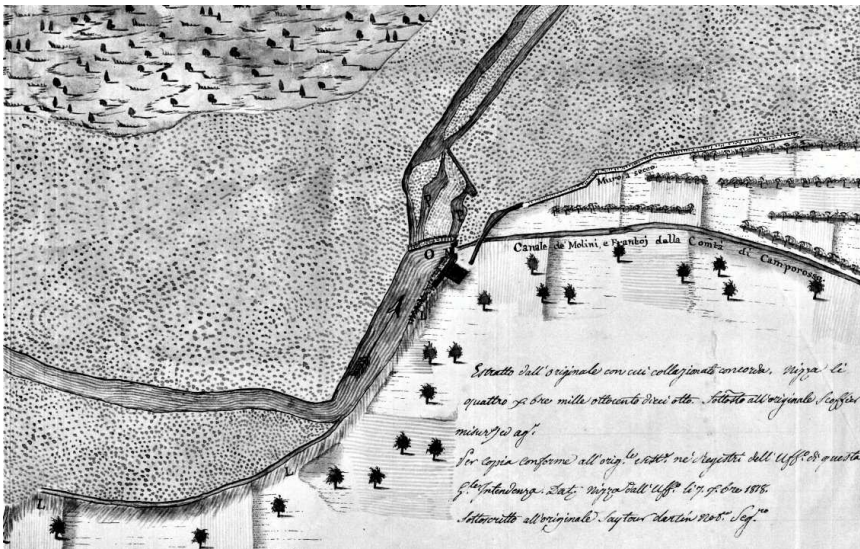 Muro a secco
Canale de' Molini, e Frantoj della Com.tà di Camporosso
O
A
L
L
Estratto dall'originale con cui collazionato concorda, Nizza li
quattro 9.bre mille ottocento dieci otto. Sottos.to all'originale Scoffier
misur.e ed ag.e
Per copia conforme all'orig.le esist.e ne' Registri dell'Uff.o di questa
G.le Intendenza. Dat. Nizza dall'Uff.o li 7. 9.bre 1818.
Sottoscritto all'originale Saytour Not.o Seg.ro